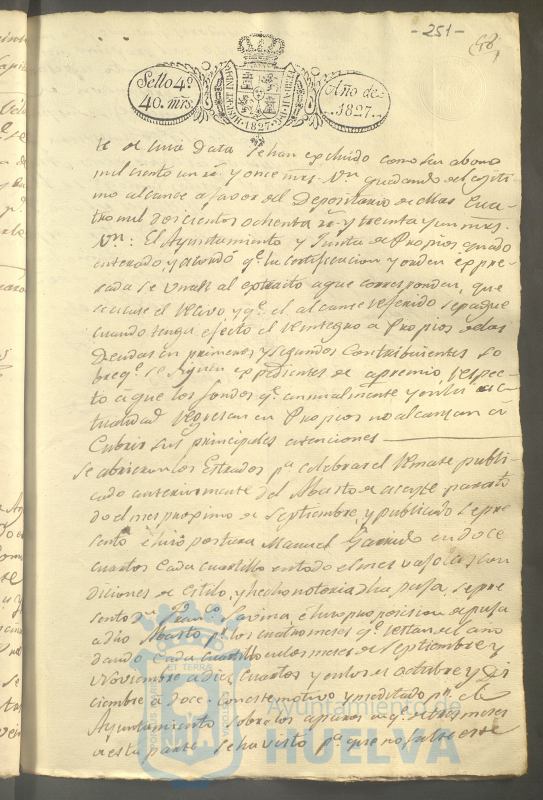 -251-
Sello 4.º
40. mrs.
HISP. ET IND. 
1827
Año de
1827.
te de una data se han excluido como su abono
mil ciento un rs. y once mrs. Vn quedando el lexiti-
mo alcance a favor del Depositario de ellas cua-
tro mil doscientos ochenta rs. y treinta y un mrs.
Vn: El Ayuntamiento y Junta de Propios quedó
enterado, y acordó q.e la certificacion y orden expre-
sada se una al extracto a que corresponden, que
se y q.e el alcance referido se pague
cuando tenga efecto el reintegro a Propios de las
Deudas en primeros y segundos Contribuientes so
bre q.e se siguen expedientes de apremio, respec-
to a que los fondos q.e annualmente y en la ac-
tualidad ingresan en Propios no alcanzan a
Cubrir sus principales atenciones
Se abrieron los Estrados p.a celebrar el remate publi-
cado anteriormente del Abasto de aceite para to
do el mes proximo de Septiembre, y publicado se pre
sentó e hizo postura Manuel Garrido en doce
cuartos cada cuartillo en todo el mes vajo las con
diciones de estilo, y hecho notoria dha puja, se pre
sentó Dn. Fran.co Savina, e hizo proposicion de puja
a dho Abasto p.r los cuatro meses q.e restan del año
dando cada cuartillo en los meses de Septiembre y
Noviembre a diez cuartos y en los de octubre y Di
ciembre a doce. Con este motivo y meditado p.r el
Ayuntamiento sobre los apuros en q.e de tres meses
a esta parte se ha visto p.a que no faltase este
ET TERRÆ
Ayuntamiento de
HUELVA